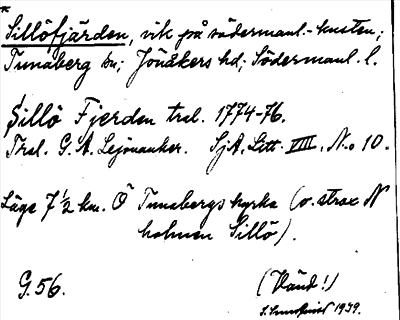 *
Sillöfjärden, vik på södermanl.-kusten;
Tunaberg sn; Jönåkers hd; Södermanl. l.
Sillö Fjerden tral. 1774-76.
Tral. G. A. Lejonanker. SjA. Litt. VIII, No 10.
Läge 7 1/2 km. Ö Tunabergs kyrka (o. strax N
holmen Sillö).
G. 56.
(Vänd!)
1939.